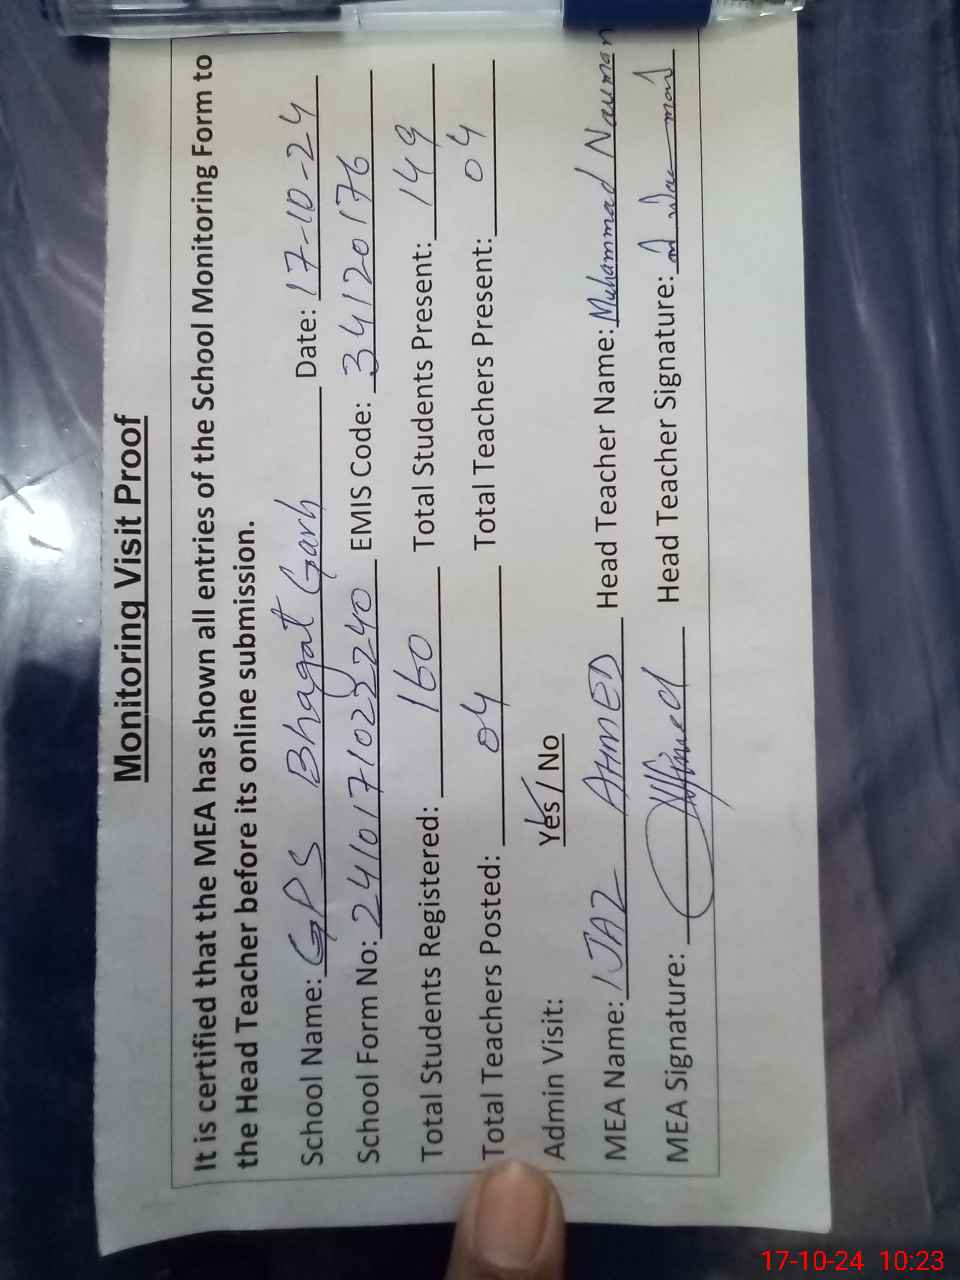 Monitoring Visit Proof
It is certified that the MEA has shown all entries of the School Monitoring Form to
the Head Teacher before its online submission.
School Name: GPS Bhagat Garh Date: 17-10-24
School Form No: 24101710232240 EMIS Code: 34120176
Total Students Registered: 160 Total Students Present: 149
Total Teachers Posted: 04 Total Teachers Present: 04
Admin Visit: Yes / No
MEA Name: IJAZ AHMED Head Teacher Name: Muhammad Nauman
MEA Signature: Head Teacher Signature:
17-10-24 10:23